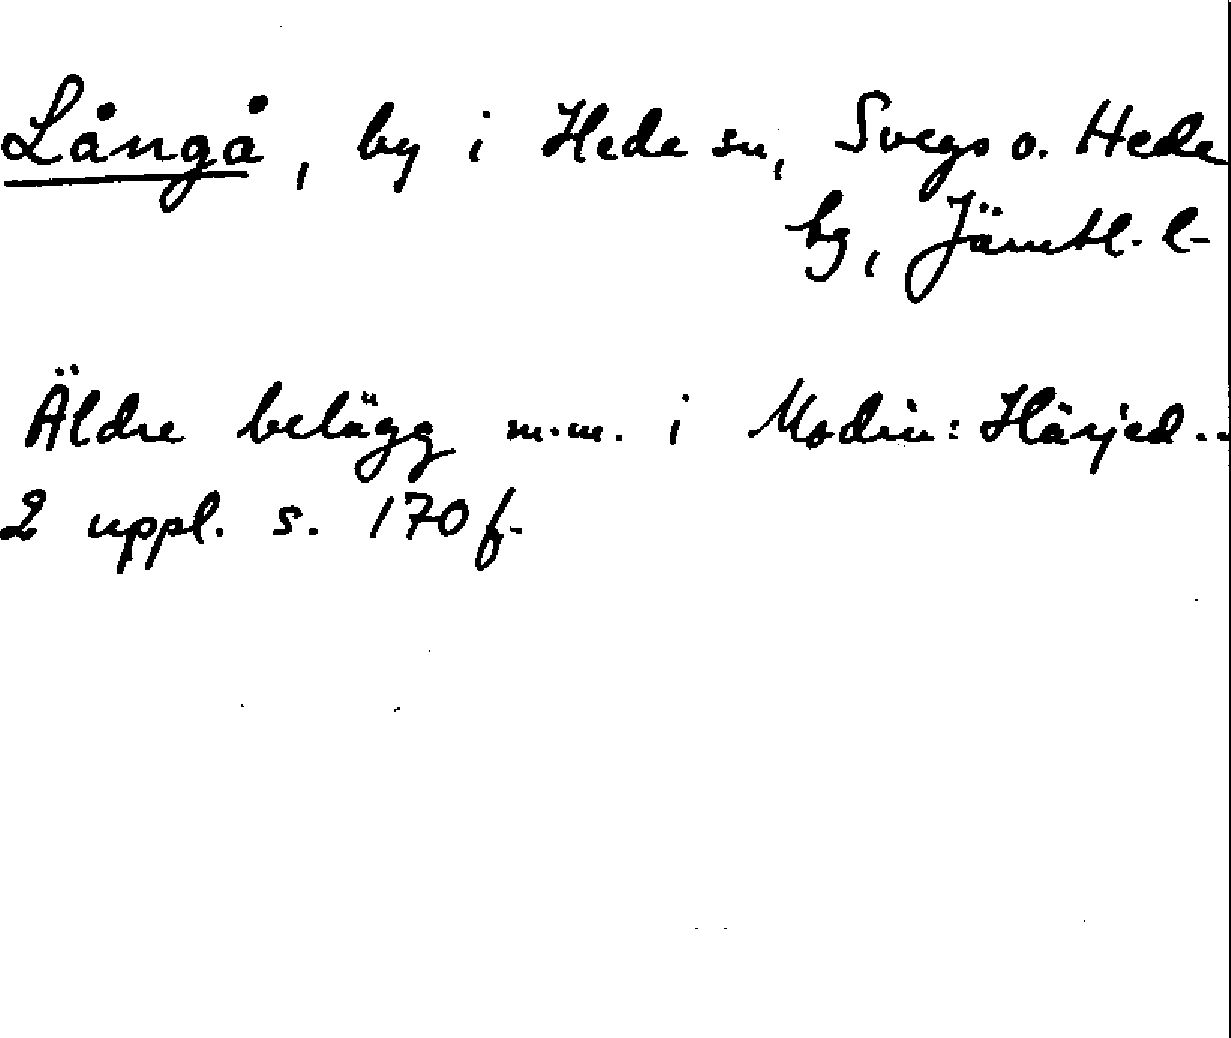 Långå, by i Hede sn, Svegs o. Hede
tg, Jämtl. l.
Äldre belägg m.m. i Modin: Härjed..
2 uppl. s. 170 f.